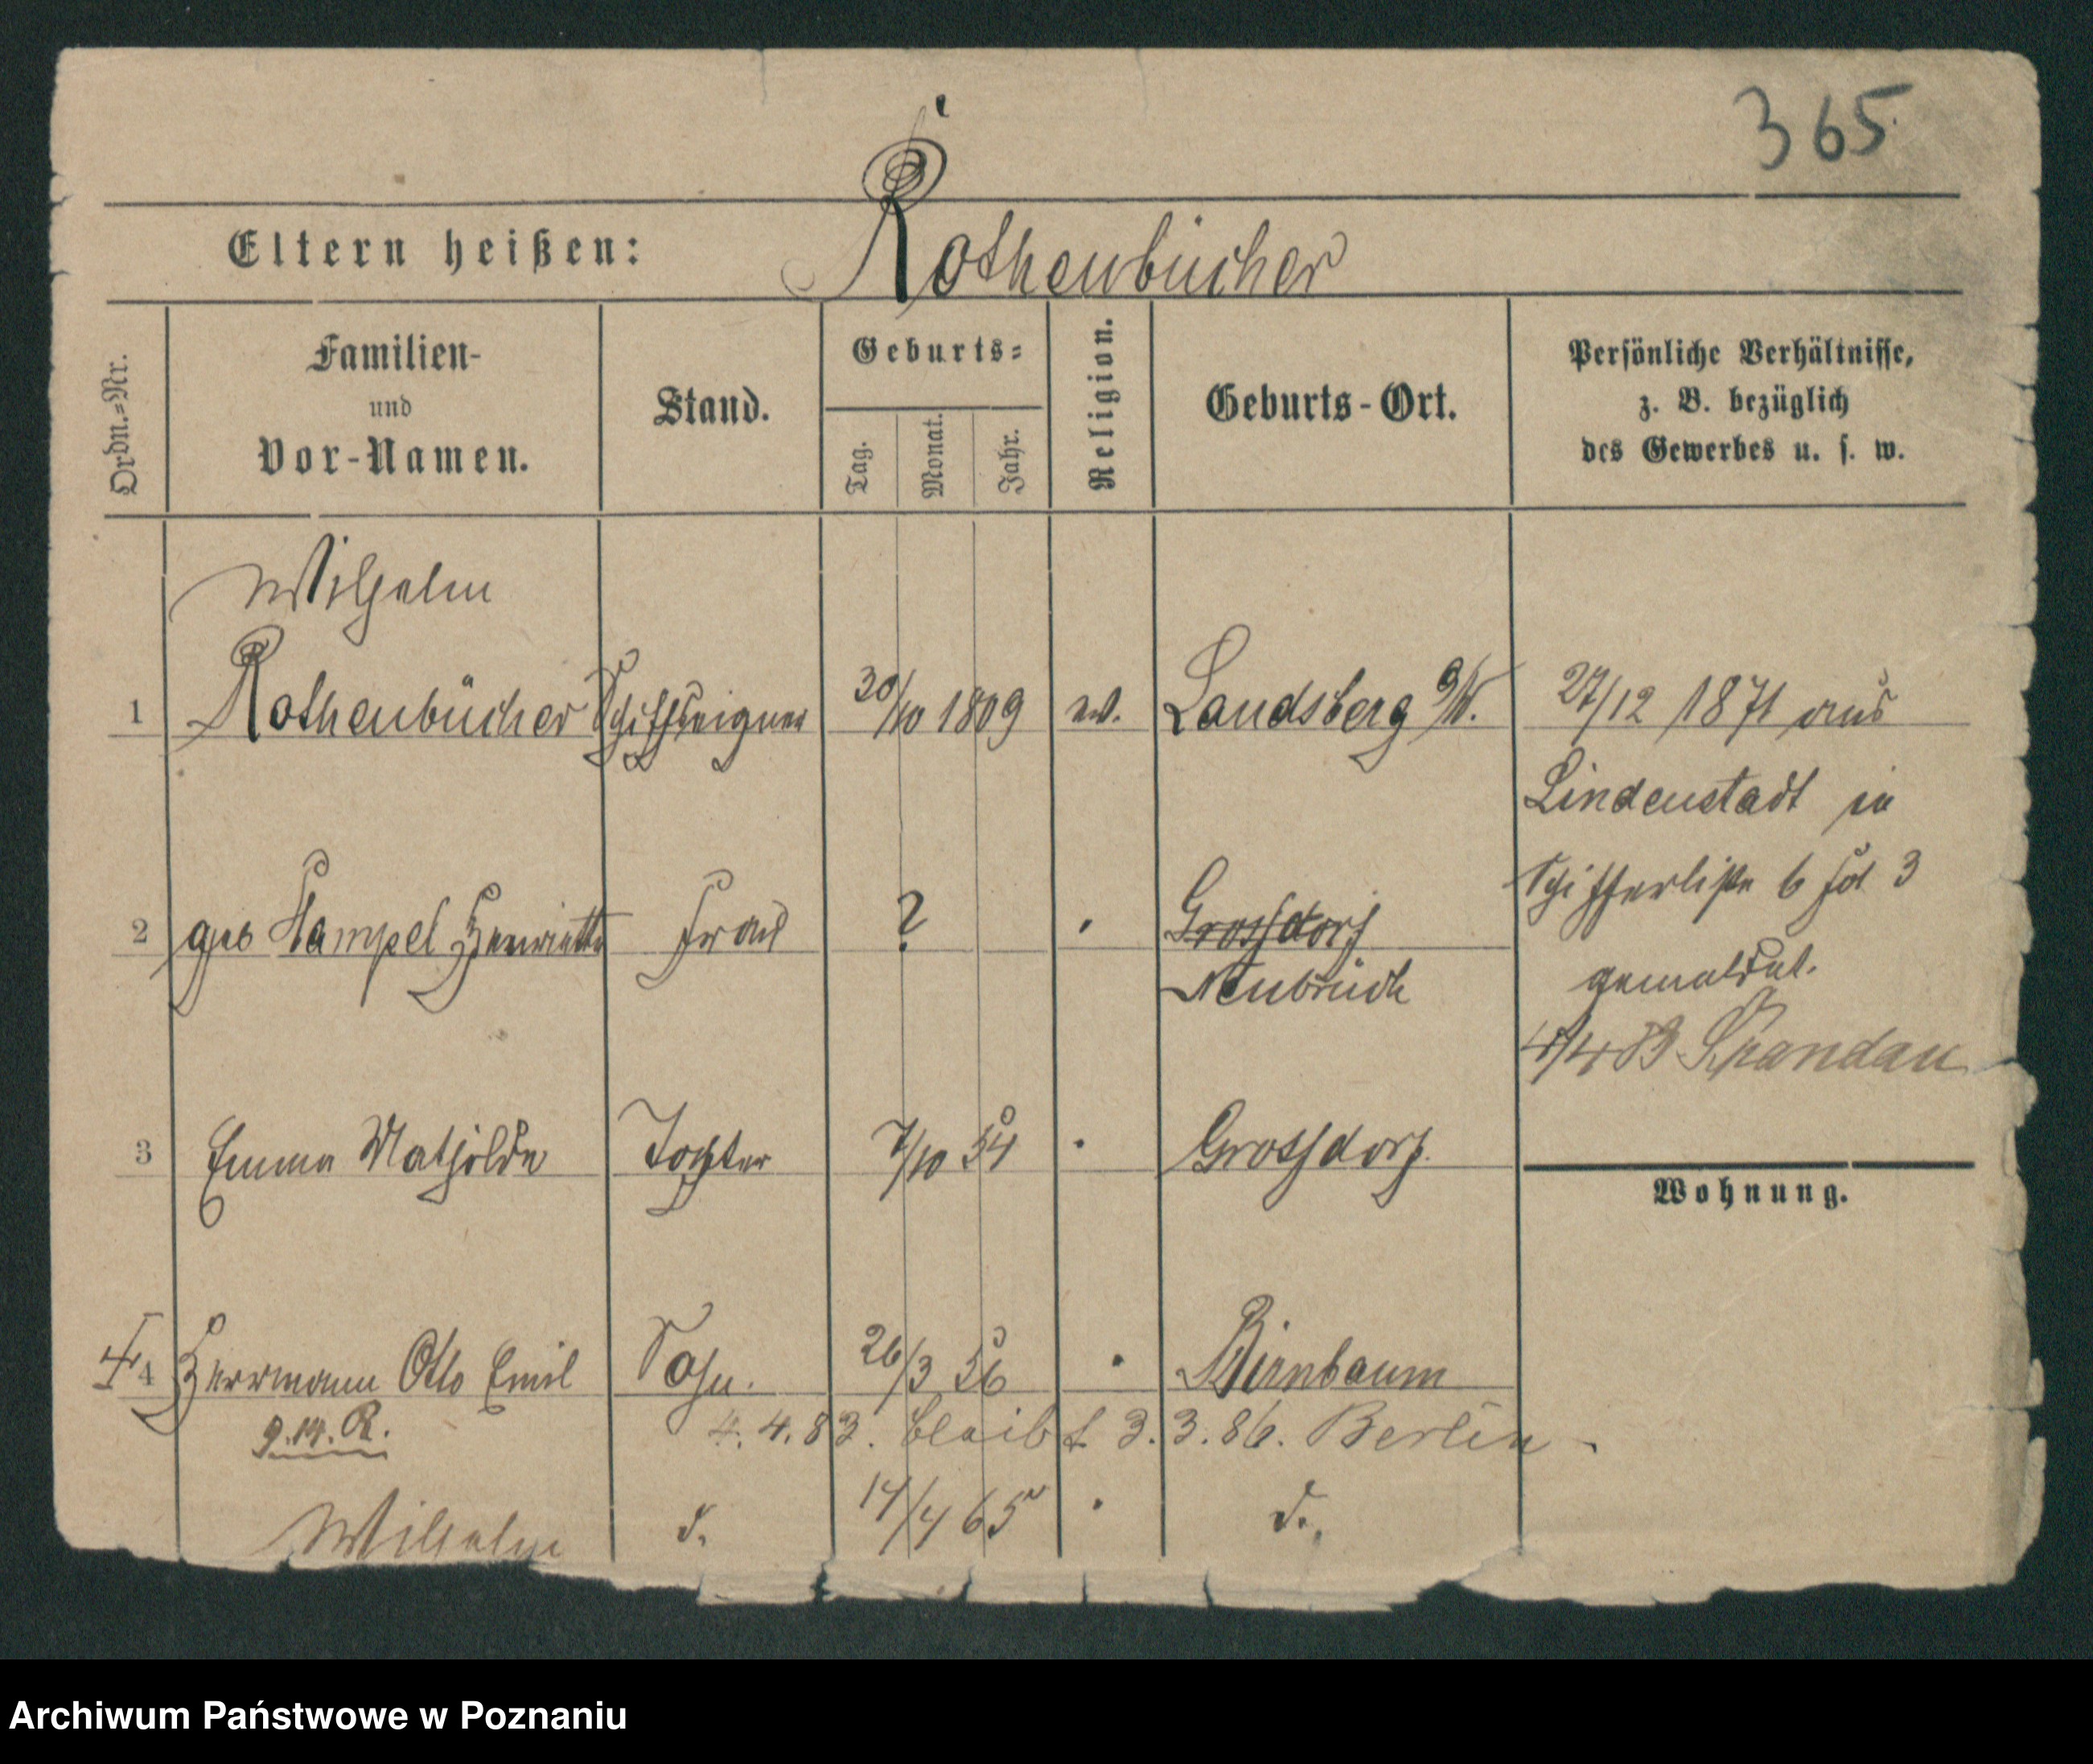 365
Eltern heißen: Rothenbücher
Ordn.=Nr. Familien- und Vor-Namen. Stand. Geburts= Tag. Monat. Jahr. Religion. Geburts-Ort. Persönliche Verhältnisse, z. B. bezüglich des Gewerbes u. s. w.
Wilhelm
1 Rothenbücher Schiffseigner 30/10 1809 ev. Landsberg a/W. 27/12 1871 aus
Lindenstadt in
2 geb Hampel Henriette Frau ? " Grossdorf Schifferliste 6 fol 3
Neubrück gemeldet.
4/4 83 Spandau
3 Emma Mathilde Tochter 7/10 54 " Grossdorf.
Wohnung.
4 Herrmann Otto Emil Sohn. 26/3 56 " Birnbaum
4.4.83. bleibt 3.3.86. Berlin
Wilhelm d. 14/4 65 " d.
Archiwum Państwowe w Poznaniu